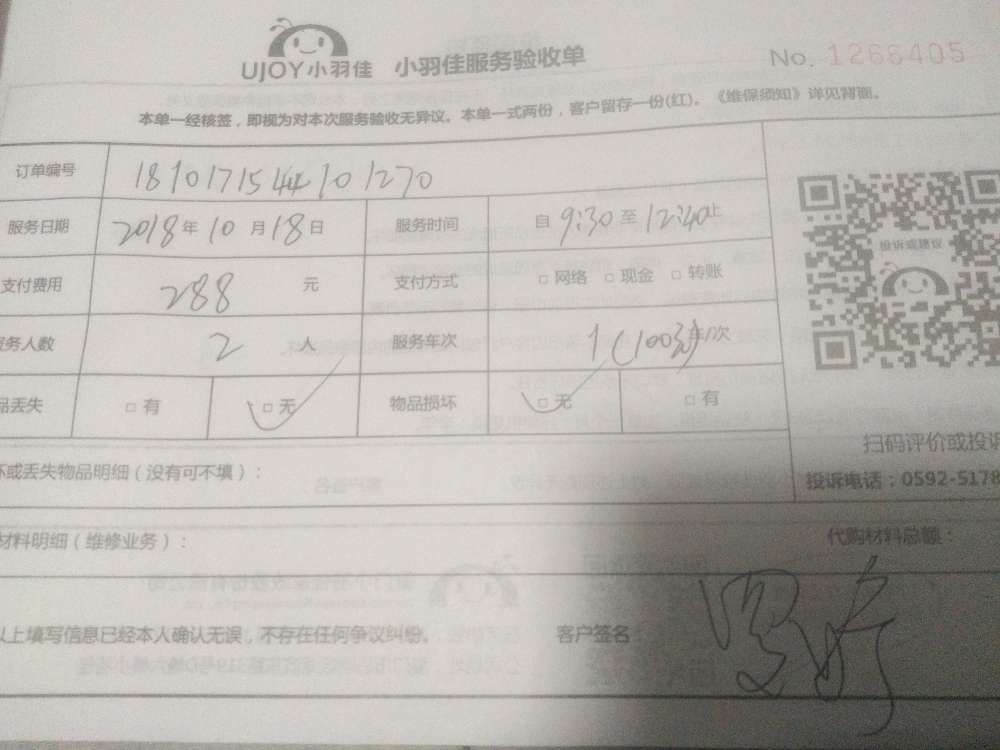 UJOY小羽佳 小羽佳服务验收单 No. 1266405
本单一经核签，即视为对本次服务验收无异议。本单一式两份，客户留存一份(红)。《维保须知》详见背面。
订单编号 1810171544101270
服务日期 2018年10月18日 服务时间 自9:30至12:40止
支付费用 288 元 支付方式 □ 网络 □ 现金 □ 转账
务人数 2 人 服务车次 1(100元)次
品丢失 □ 有 □ 无 物品损坏 □ 无 □ 有
投诉或建议
扫码评价或投诉
坏或丢失物品明细（没有可不填）：
投诉电话：0592-5178
材料明细（维修业务）： 代购材料总额：
以上填写信息已经本人确认无误，不存在任何争议纠纷。 客户签名